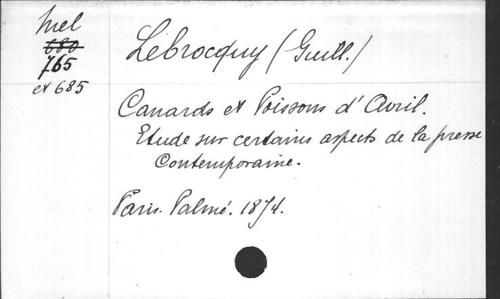 Mel
680
765
et 685
Lebrocquy (Guill.)
Canards et Poissons d'Avril.
Etude sur certains aspects de la presse
Contemporaine.
Paris. Palmé. 1874.